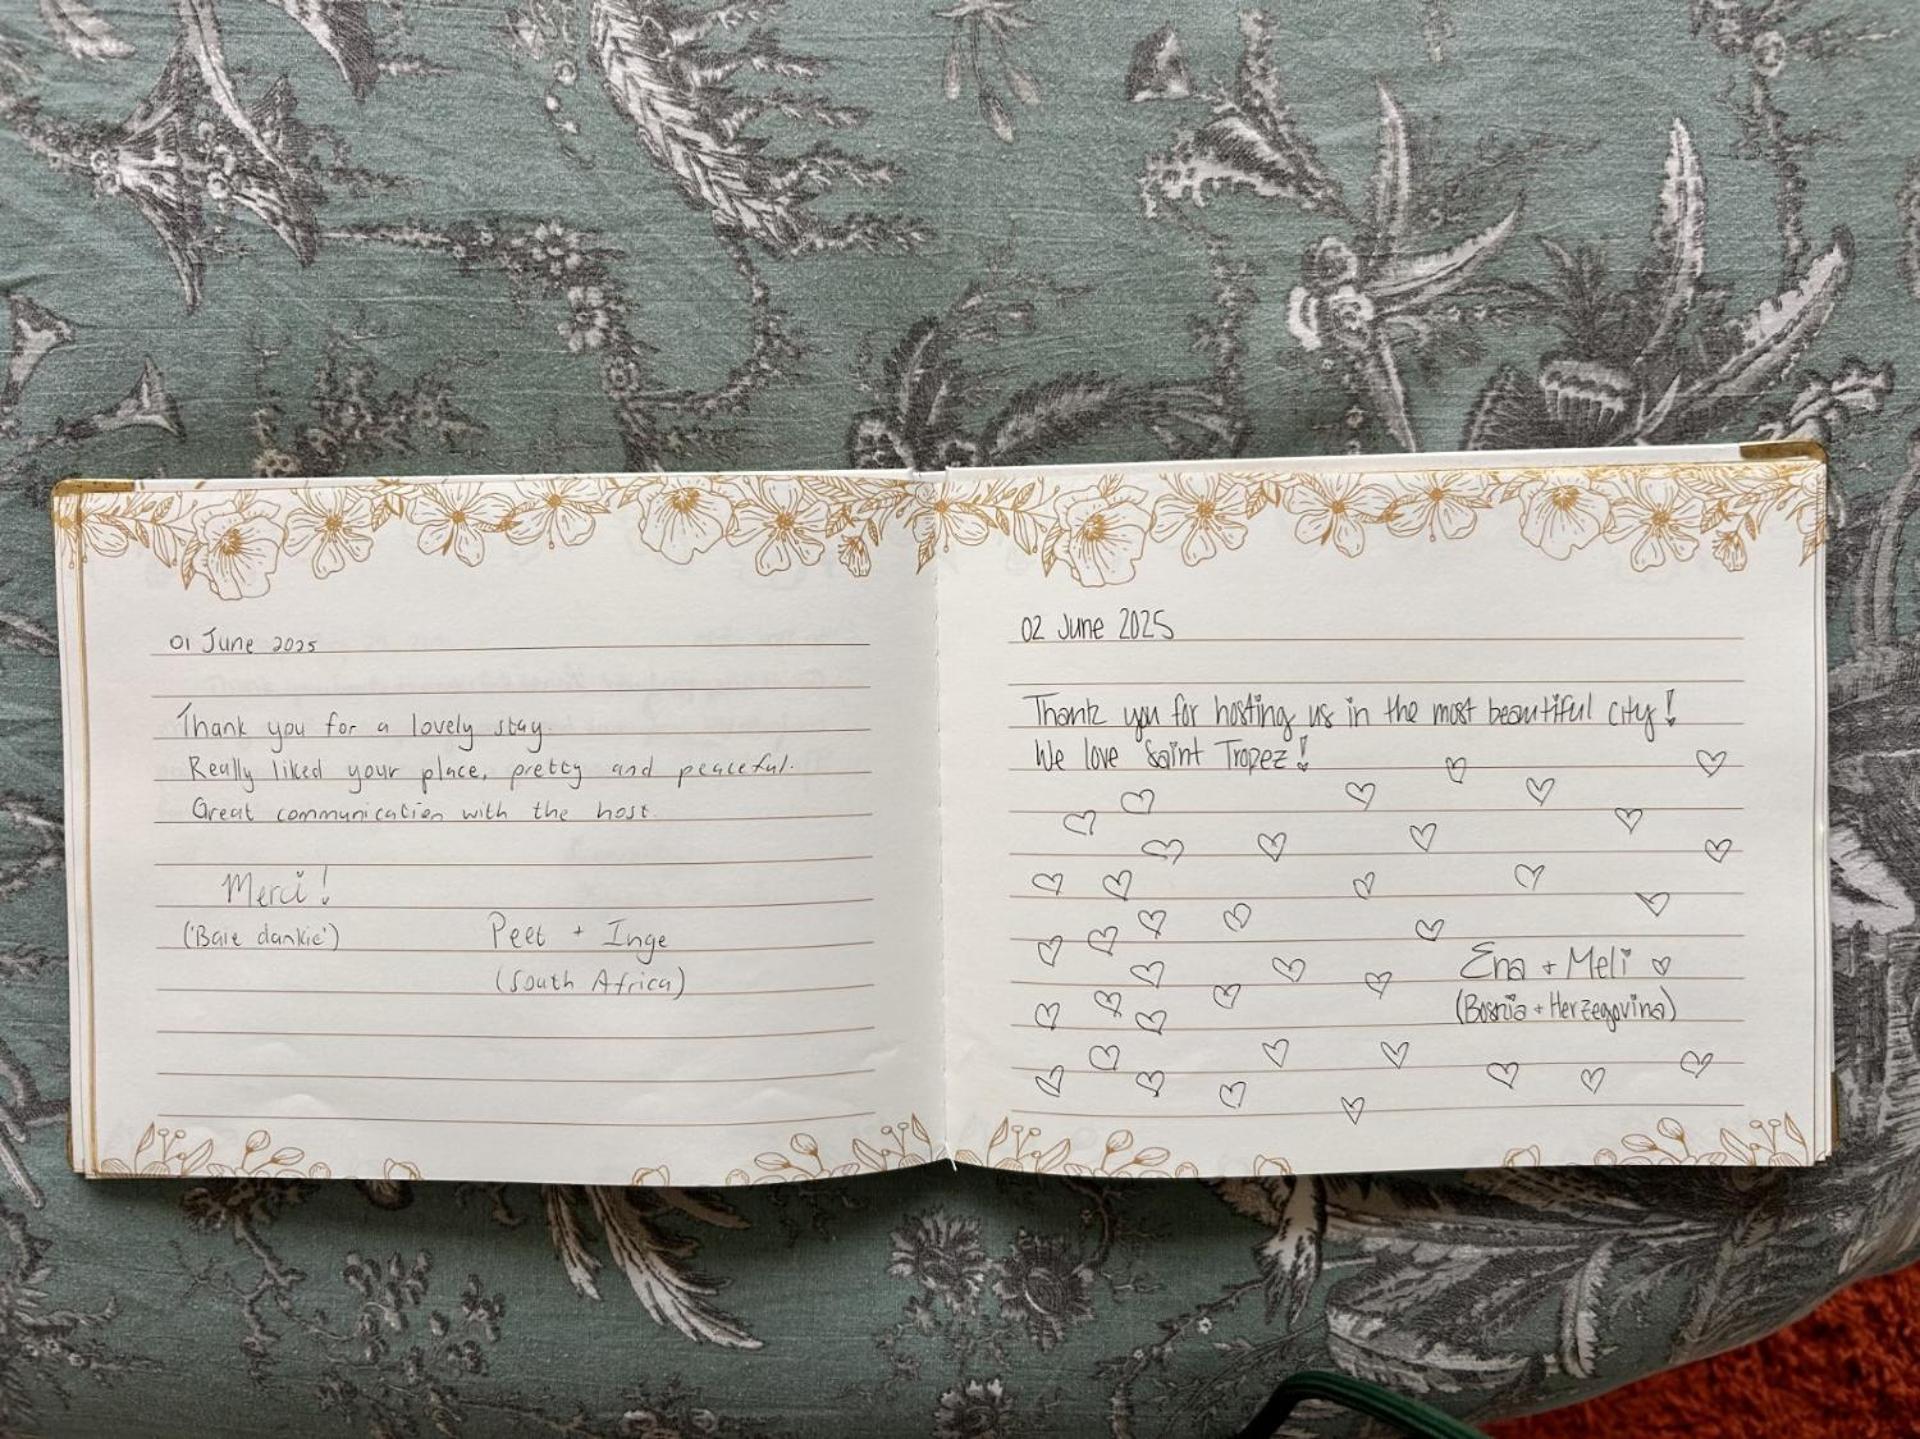 01 June 2025
Thank you for a lovely stay.
Really liked your place, pretty and peaceful.
Great communication with the host.
Merci!
('Baie dankie')
Peet + Inge
(South Africa)
02 June 2025
Thank you for hosting us in the most beautiful city!
We love Saint Tropez!
Ena + Meli ♡
(Bosnia + Herzegovina)